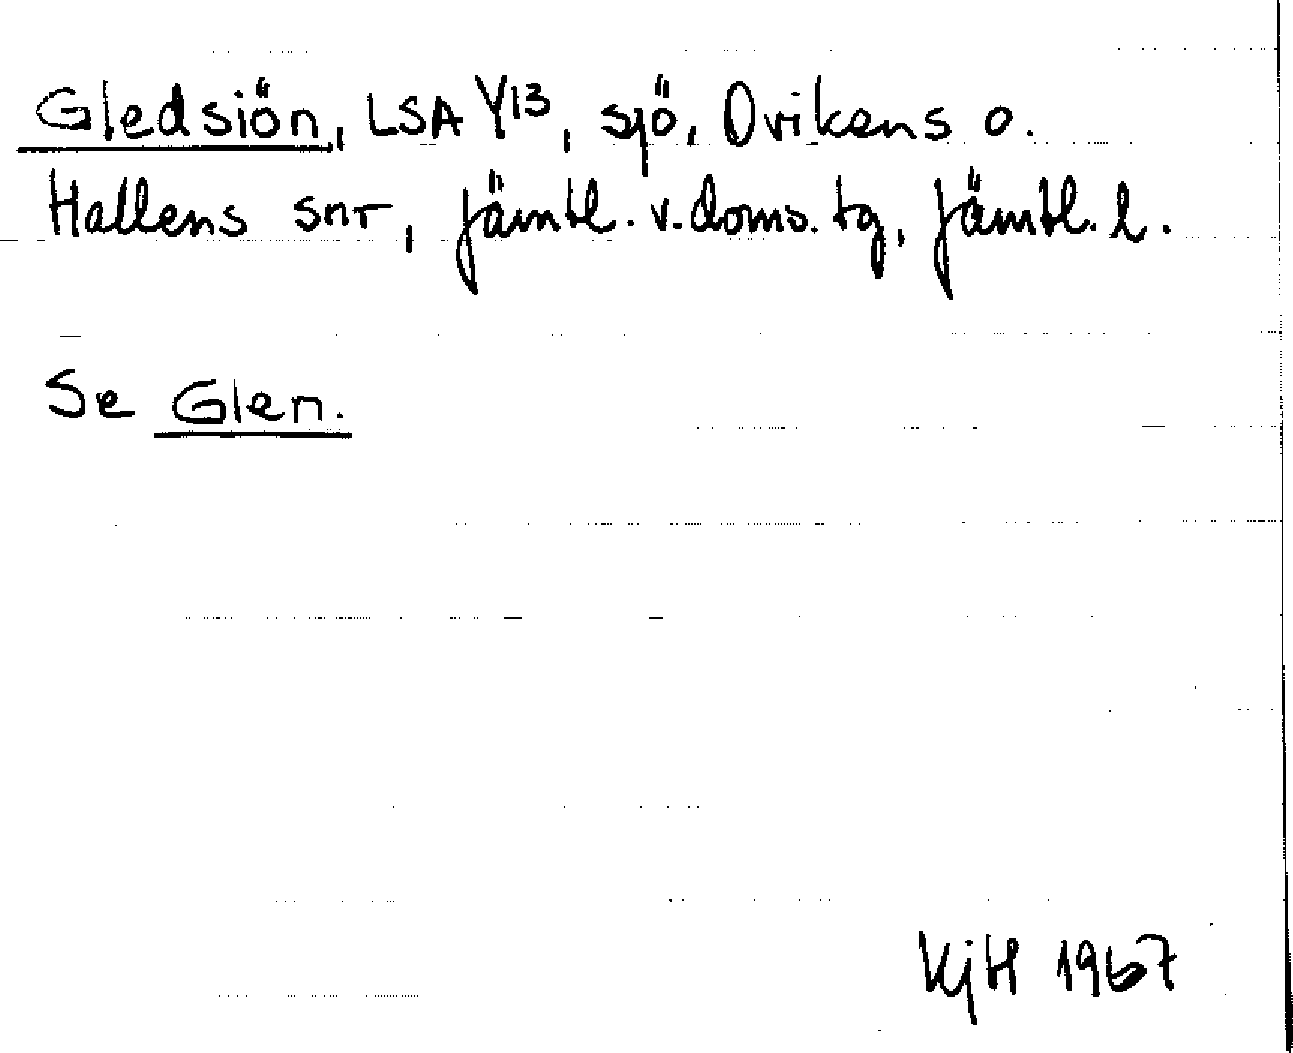 Gledsiön, LSA Y13, sjö, Ovikens o.
Hallens snr, Jämtl. v. doms. tg, Jämtl. l.
Se Glen.
KjH 1967